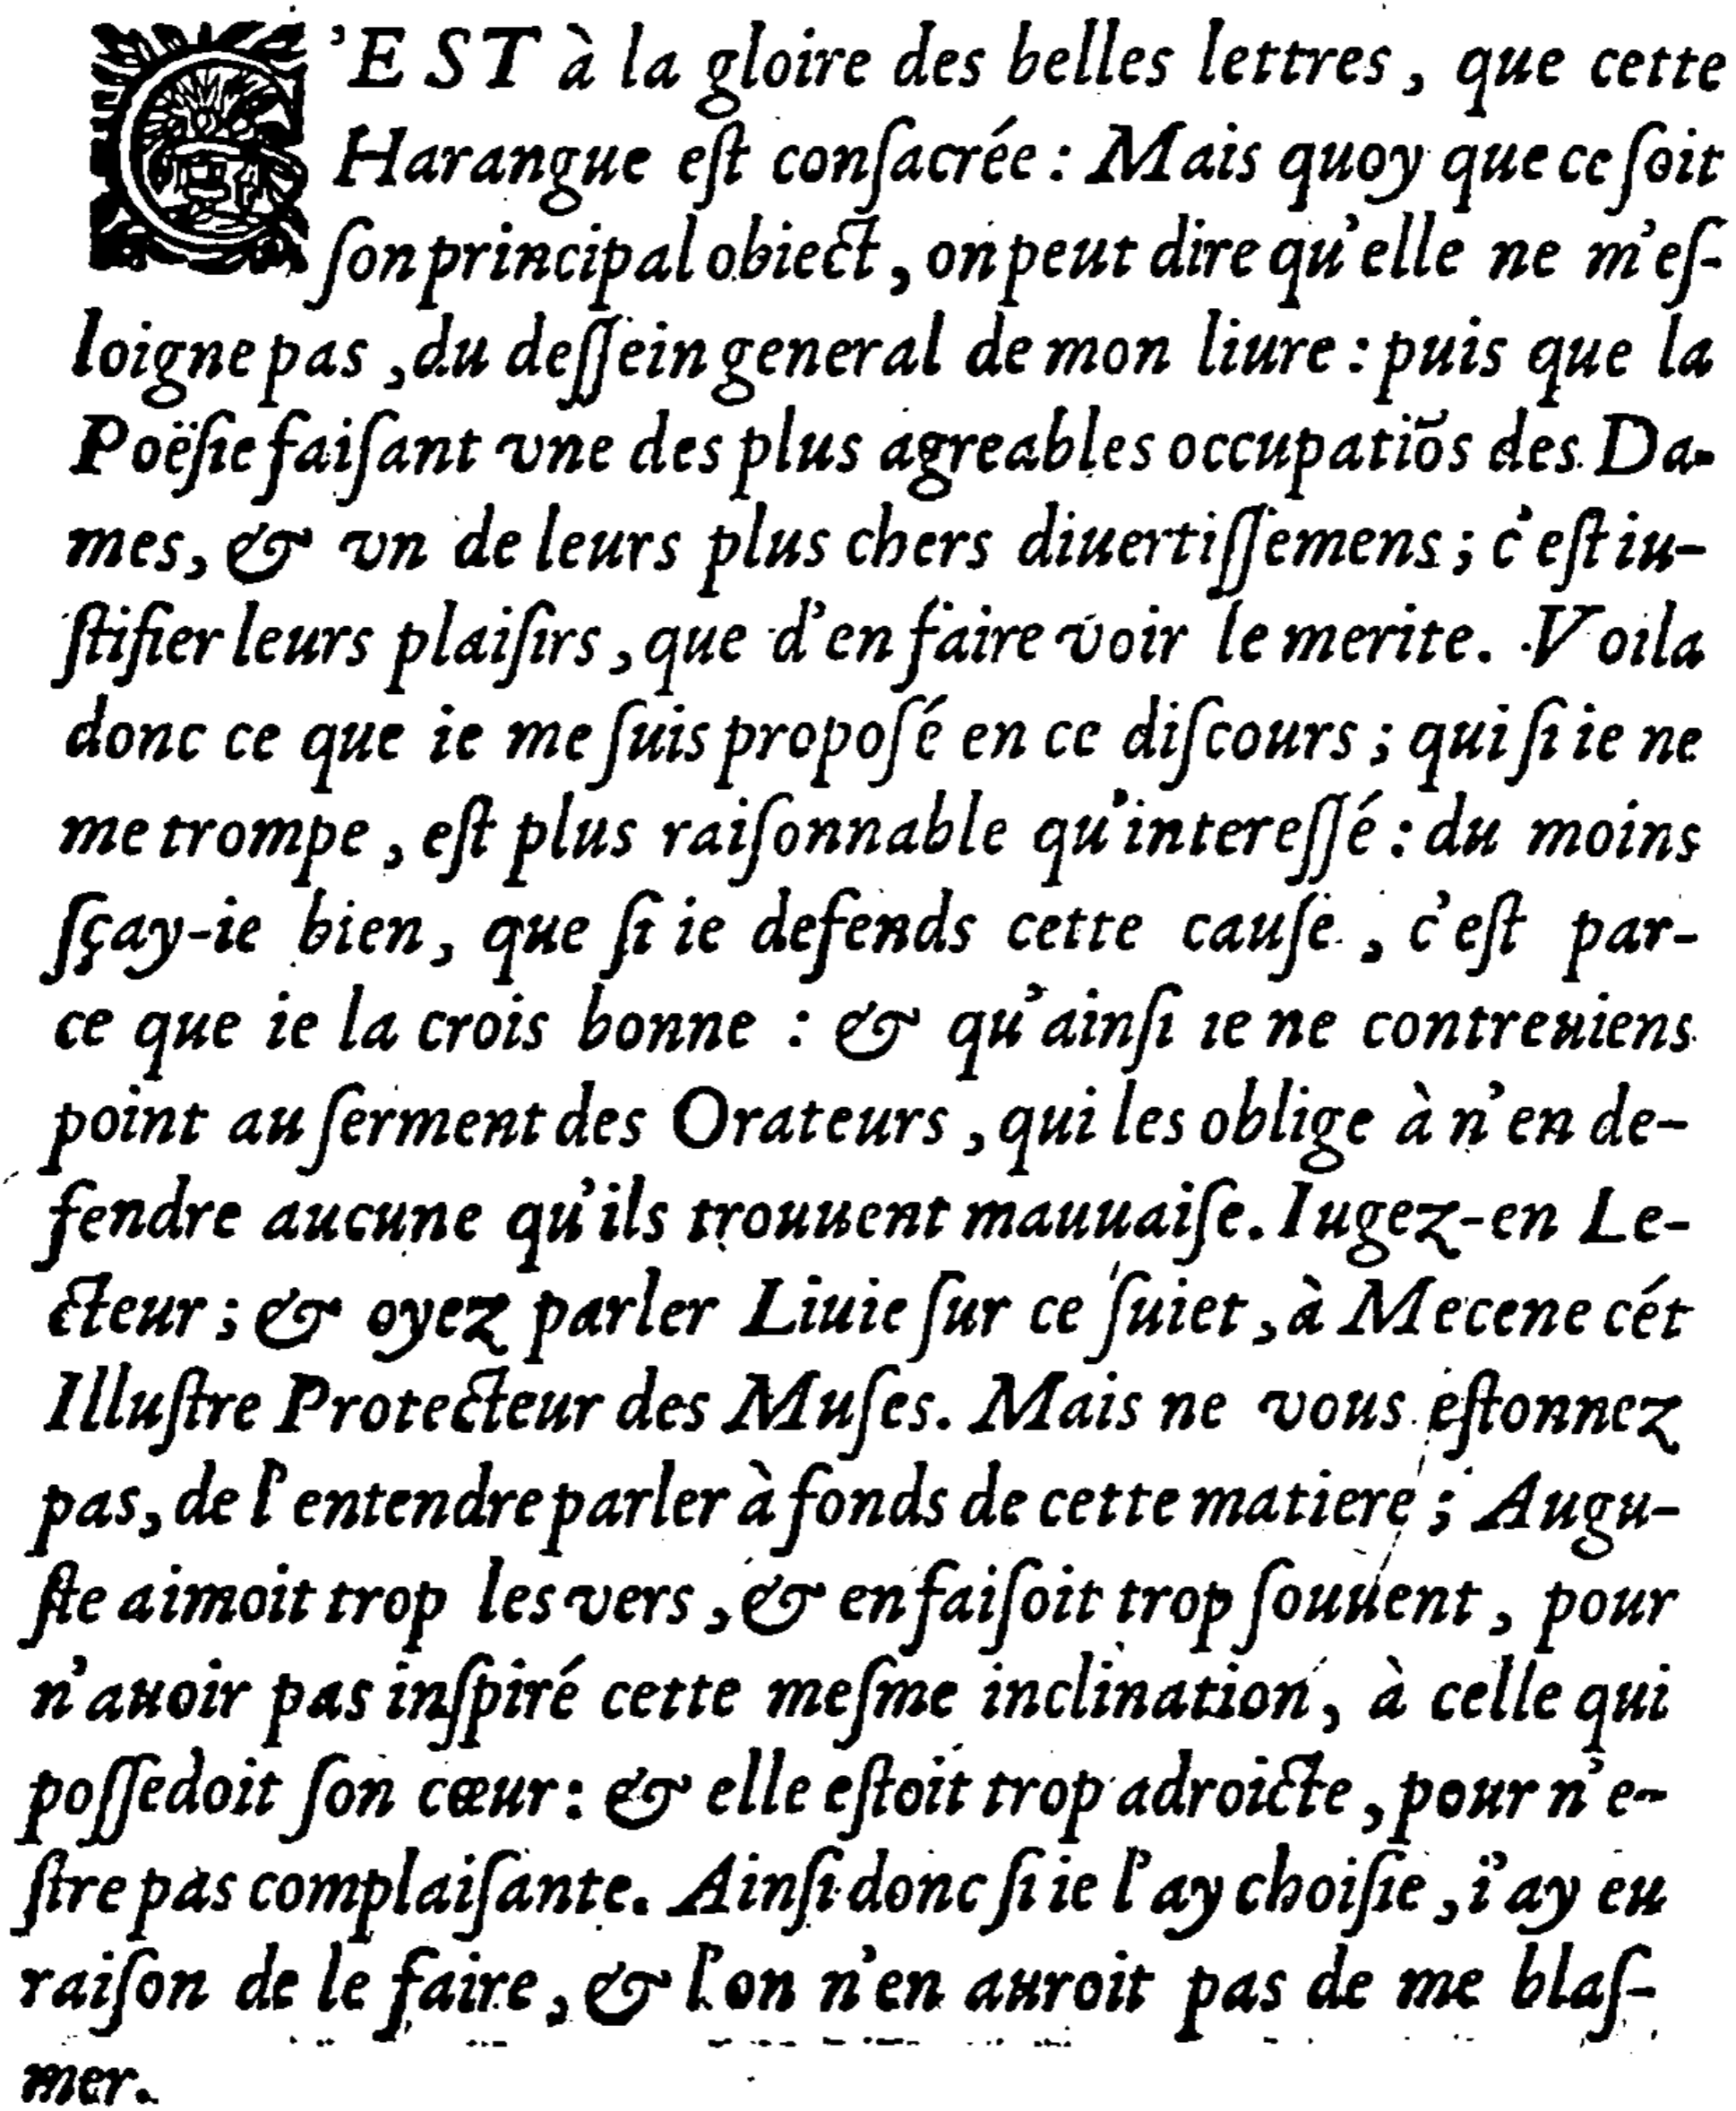 C'EST à la gloire des belles lettres, que cette
Harangue eſt conſacrée : Mais quoy que ce ſoit
ſon principal obiect, on peut dire qu'elle ne m'eſ-
loigne pas, du deſſein general de mon liure : puis que la
Poëſie faiſant vne des plus agreables occupatiõs des Da-
mes, & vn de leurs plus chers diuertiſſemens ; c'eſt iu-
ſtifier leurs plaiſirs, que d'en faire voir le merite. Voila
donc ce que ie me ſuis propoſé en ce diſcours ; qui ſi ie ne
me trompe, eſt plus raiſonnable qu'intereſſé : du moins
ſçay-ie bien, que ſi ie defends cette cauſe, c'eſt par-
ce que ie la crois bonne : & qu'ainſi ie ne contreuiens
point au ſerment des Orateurs, qui les oblige à n'en de-
fendre aucune qu'ils trouuent mauuaiſe. Iugez-en Le-
cteur ; & oyez parler Liuie ſur ce ſuiet, à Mecene cét
Illuſtre Protecteur des Muſes. Mais ne vous eſtonnez
pas, de l'entendre parler à fonds de cette matiere ; Augu-
ſte aimoit trop les vers, & en faiſoit trop ſouuent, pour
n'auoir pas inſpiré cette meſme inclination, à celle qui
poſſedoit ſon cœur : & elle eſtoit trop adroicte, pour n'e-
ſtre pas complaiſante. Ainſi donc ſi ie l'ay choiſie, i'ay eu
raiſon de le faire, & l'on n'en auroit pas de me blaſ-
mer.